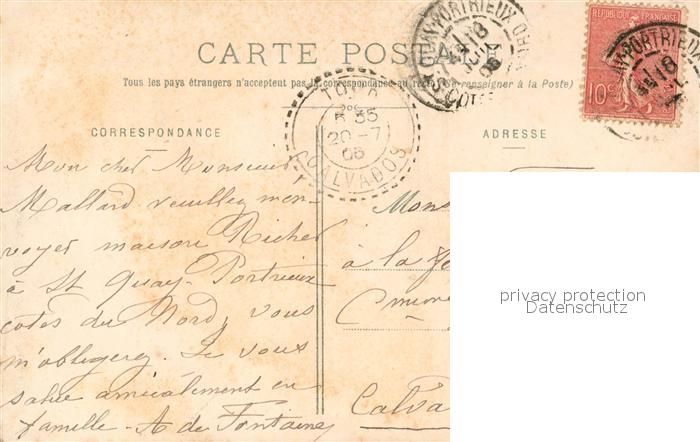 CARTE POSTALE
Tous les pays étrangers n'acceptent pas la correspondance au recto (Se renseigner à la Poste)
CORRESPONDANCE
ADRESSE
REPUBLIQUE FRANÇAISE
10c
PORTRIEUX
PORTRIEUX
5 35
20-7
06
CALVADOS
Mon cher Monsieur
Mallard veuillez men-
voyer maison Richer
à St Quay-Portrieux
côtes du Nord, vous
m'obligerez. Je vous
salue amicalement en
famille - A de Fontaines
Mons
à la
Calva
privacy protection
Datenschutz